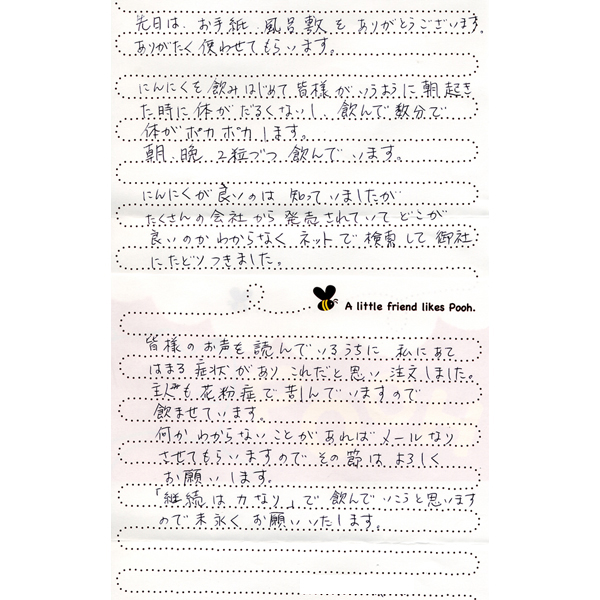 先日は、お手紙、風呂敷をありがとうございます。
ありがたく使わせてもらいます。
にんにくを飲みはじめて皆様がいうように朝起き
た時に体がだるくないし、飲んで数分で
体がポカポカします。
朝、晩、2粒づつ飲んでいます。
にんにくが良いのは知っていましたが
たくさんの会社から発売されていてどこが
良いのかわからなく、ネットで検索して御社
にたどりつきました。
A little friend likes Pooh.
皆様のお声を読んでいるうちに、私にあて
はまる症状があり、これだと思い注文しました。
主人も花粉症で苦しんでいますので
飲ませています。
何かわからないことがあればメールなり
させてもらいますのでその節はよろしく
お願いします。
「継続は力なり」で飲んでいこうと思います
ので末永くお願いいたします。